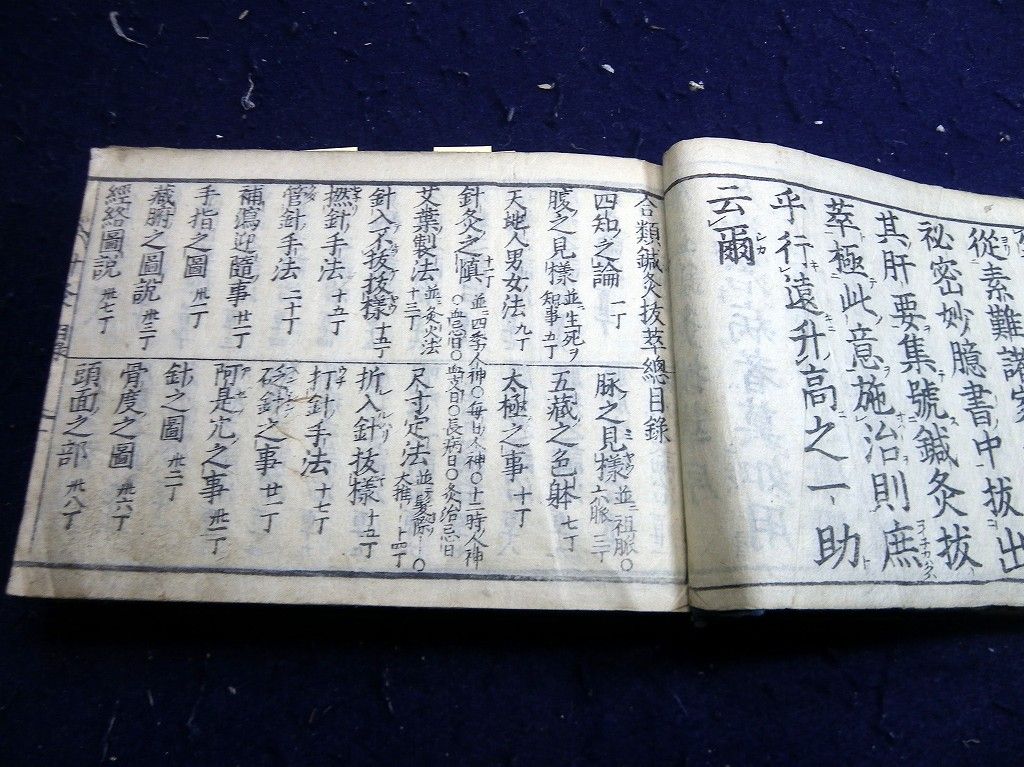 從素難諸家
祕密妙臆書中拔出
其肝要集號鍼灸拔
萃極此意施治則庶
乎行遠升高之一助
云爾
合類鍼灸拔萃總目錄
四知之論 一丁
脉之見樣 並ニ祖脈○六脈 三丁
腹之見樣 並生死ヲ知事 五丁
五藏之色躰 七丁
天地人男女法 九丁
太極之事 十丁
針灸之慎 十丁 並ニ四季人神○每日人神○十二時人神○血忌日○長病日○灸治忌日
艾葉製法 並ニ灸火法 十三丁
尺寸定法 並ニ髮際○大推 十四丁
針入不拔拔樣 十五丁
折入針拔樣 十五丁
撚針手法 十五丁
打針手法 十七丁
管針手法 二十丁
砭針之事 廿二丁
補瀉迎隨事 廿二丁
阿是穴之事 卅一丁
手指之圖 卅丁
針之圖 卅二丁
藏腑之圖說 卅三丁
骨度之圖 卅六丁
經絡圖說 卅七丁
頭面之部 卅八丁